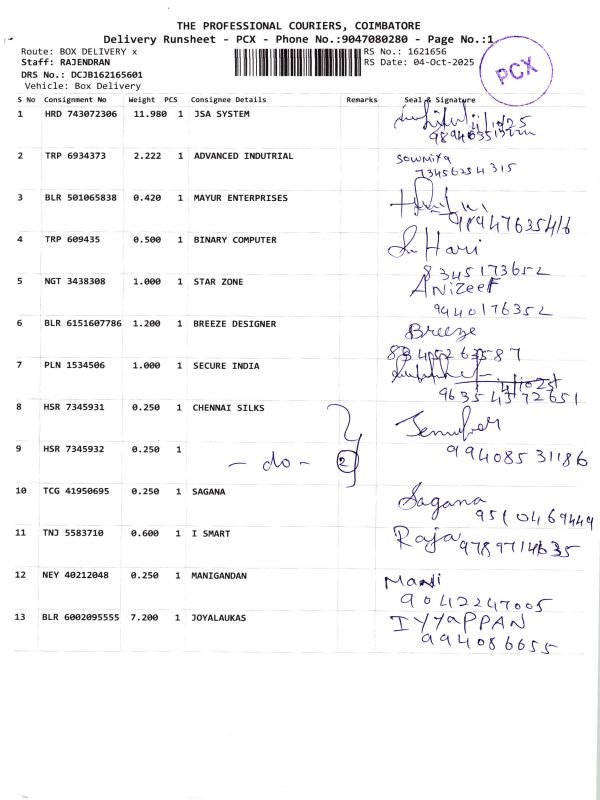 THE PROFESSIONAL COURIERS, COIMBATORE
Delivery Runsheet - PCX - Phone No.:9047080280 - Page No.:1
Route: BOX DELIVERY x
RS No.: 1621656
Staff: RAJENDRAN
RS Date: 04-Oct-2025
DRS No.: DCJB162165601
Vehicle: Box Delivery
PCX
S No Consignment No Weight PCS Consignee Details Remarks Seal & Signature
1 HRD 743072306 11.980 1 JSA SYSTEM
2 TRP 6934373 2.222 1 ADVANCED INDUTRIAL Sowmiya
73456254315
3 BLR 501065838 0.420 1 MAYUR ENTERPRISES
98947635416
4 TRP 609435 0.500 1 BINARY COMPUTER Hari
8345173652
5 NGT 3438308 1.000 1 STAR ZONE ANizeeF
9440176352
6 BLR 6151607786 1.200 1 BREEZE DESIGNER Breeze
7 PLN 1534506 1.000 1 SECURE INDIA
8 HSR 7345931 0.250 1 CHENNAI SILKS
99408531186
9 HSR 7345932 0.250 1 - do - 2
10 TCG 41950695 0.250 1 SAGANA Sagana
9510469449
11 TNJ 5583710 0.600 1 I SMART Raja 9789714635
12 NEY 40212048 0.250 1 MANIGANDAN Mani
9042247005
13 BLR 6002095555 7.200 1 JOYALAUKAS IYYaPPAN
994086655